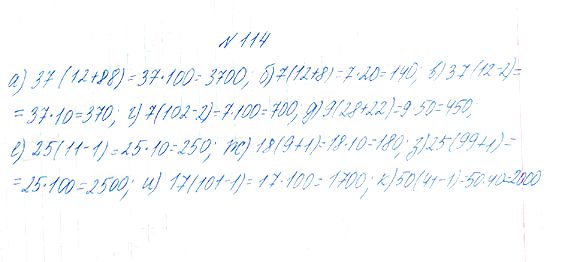 N 114
а) 37 (12+88) = 37·100 = 3700; б) 7(12+8) = 7·20 = 140; в) 37(12-2) =
= 37·10 = 370; г) 7(102-2) = 7·100 = 700; д) 9(28+22) = 9·50 = 450;
е) 25(11-1) = 25·10 = 250; ж) 18(9+1) = 18·10 = 180; з) 25(99+1) =
= 25·100 = 2500; и) 17(101-1) = 17·100 = 1700; к) 50(41-1) = 50·40 = 2000